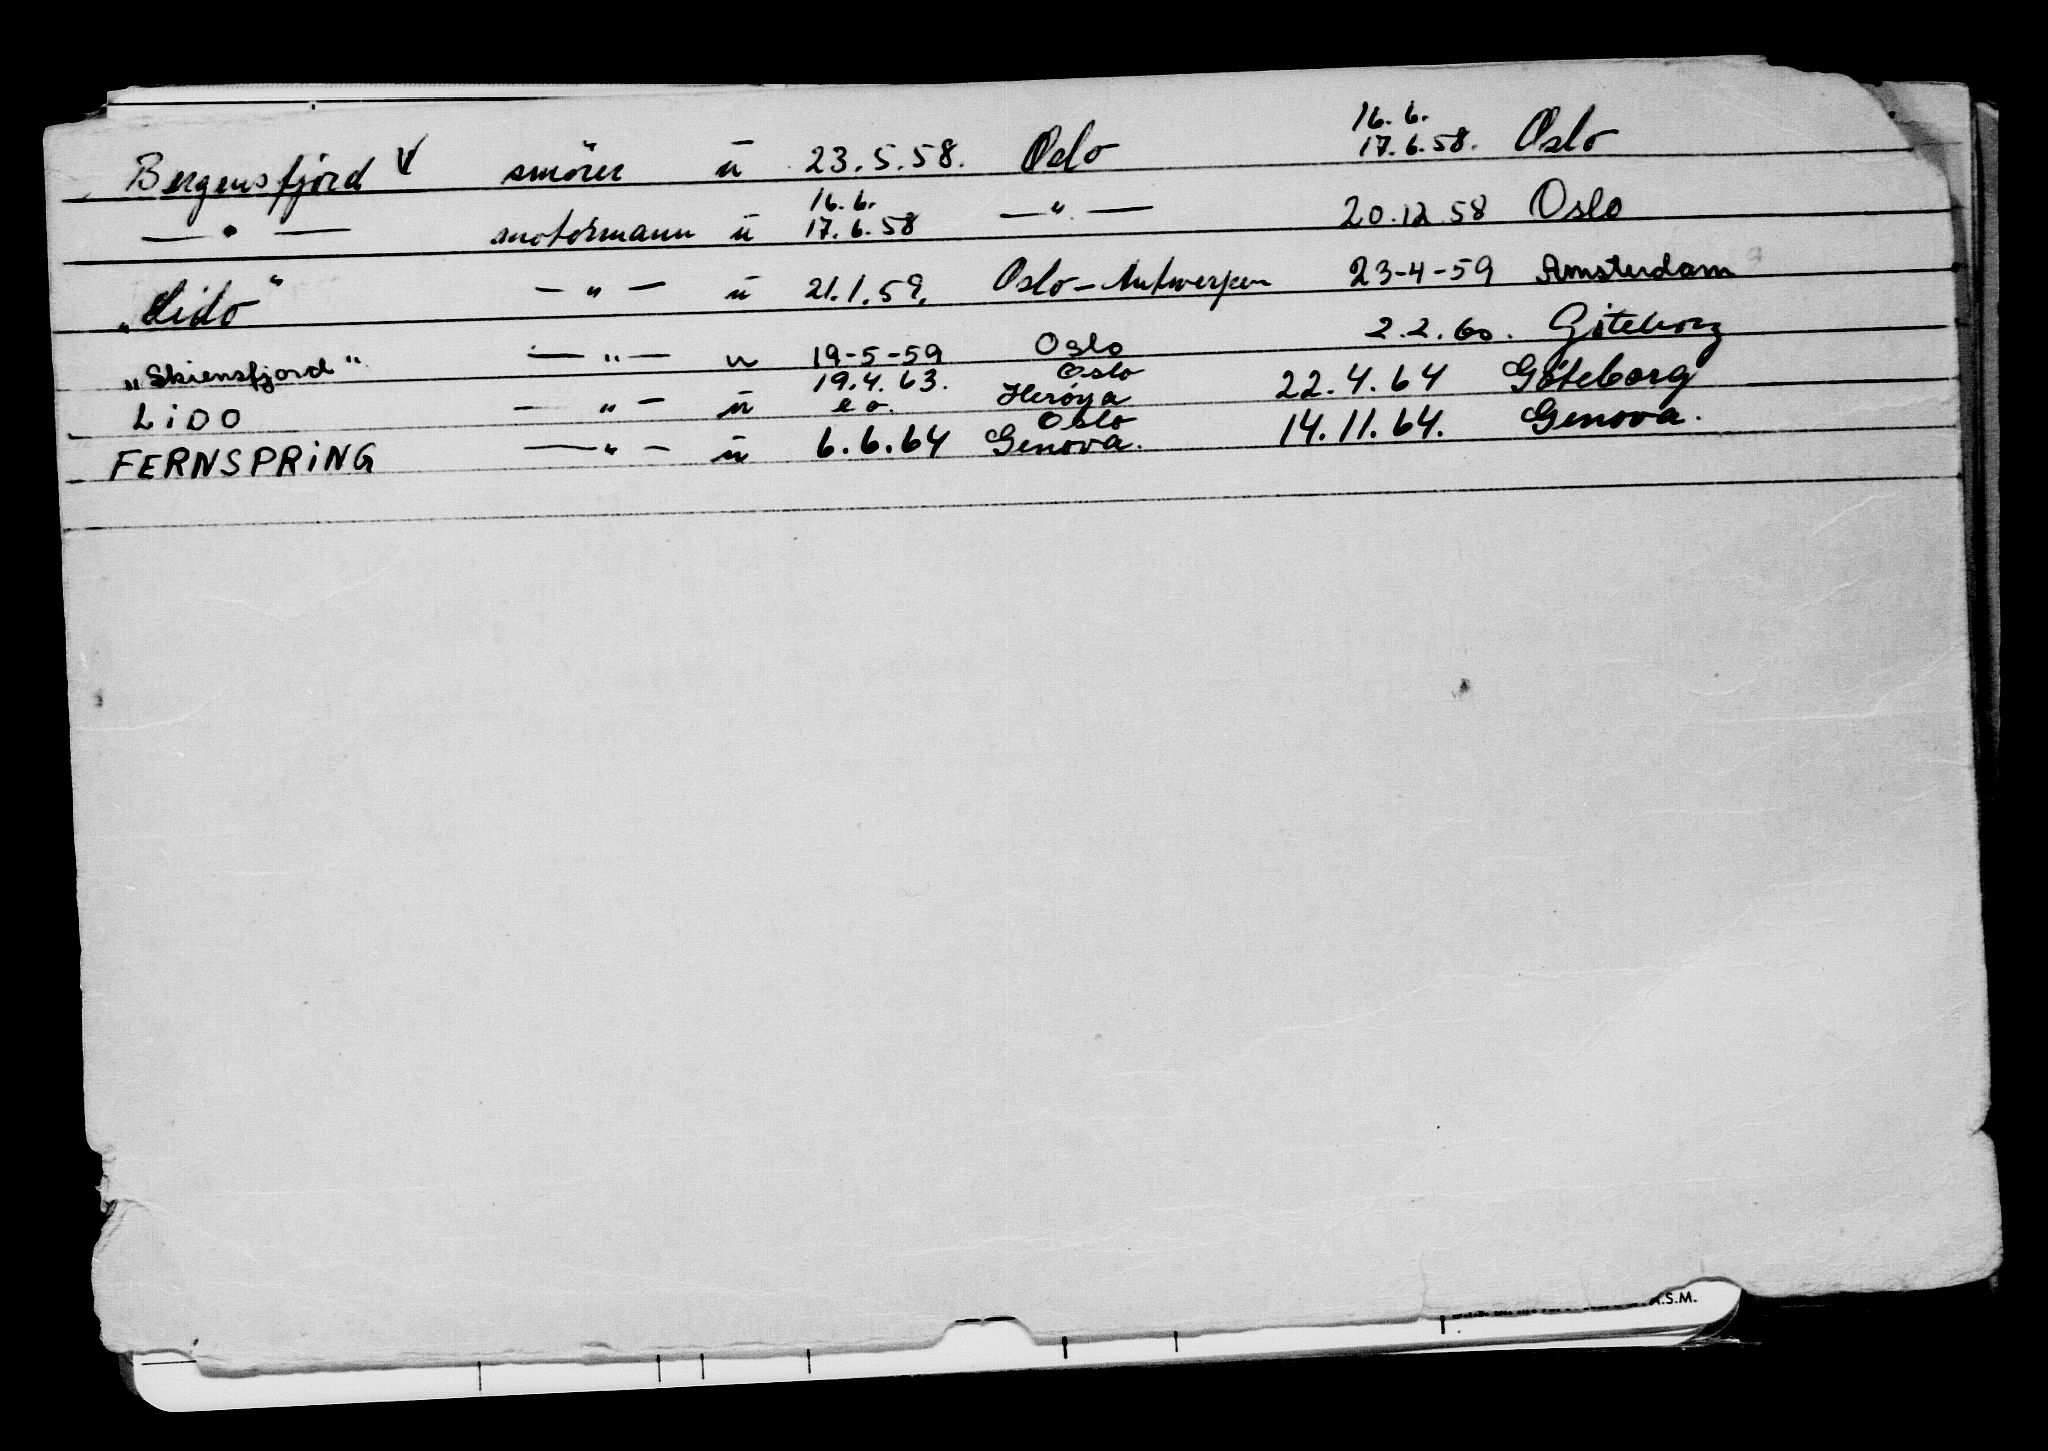 Bergensfjord V smörer u 23.5.58. Oslo 16.6. 17.6.58. Oslo
— " — motormann u 16.6. 17.6.58 — " — 20.12.58 Oslo
"Lido" — " — u 21.1.59. Oslo-Antwerpen 23-4-59 Amsterdam
"Skiensfjord" — " — u 19-5-59 Oslo 2.2.60. Göteborg
LiDO — " — u 19.4.63. e o. Oslo Herøya 22.4.64 Göteborg
FERNSPRiNG — " — u 6.6.64 Oslo Genova. 14.11.64. Genova.
.S.M.